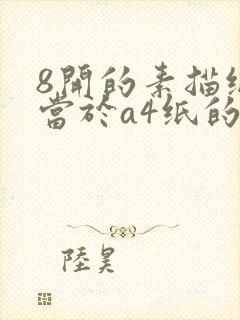 8開的素描
當於a4紙的
陸昊